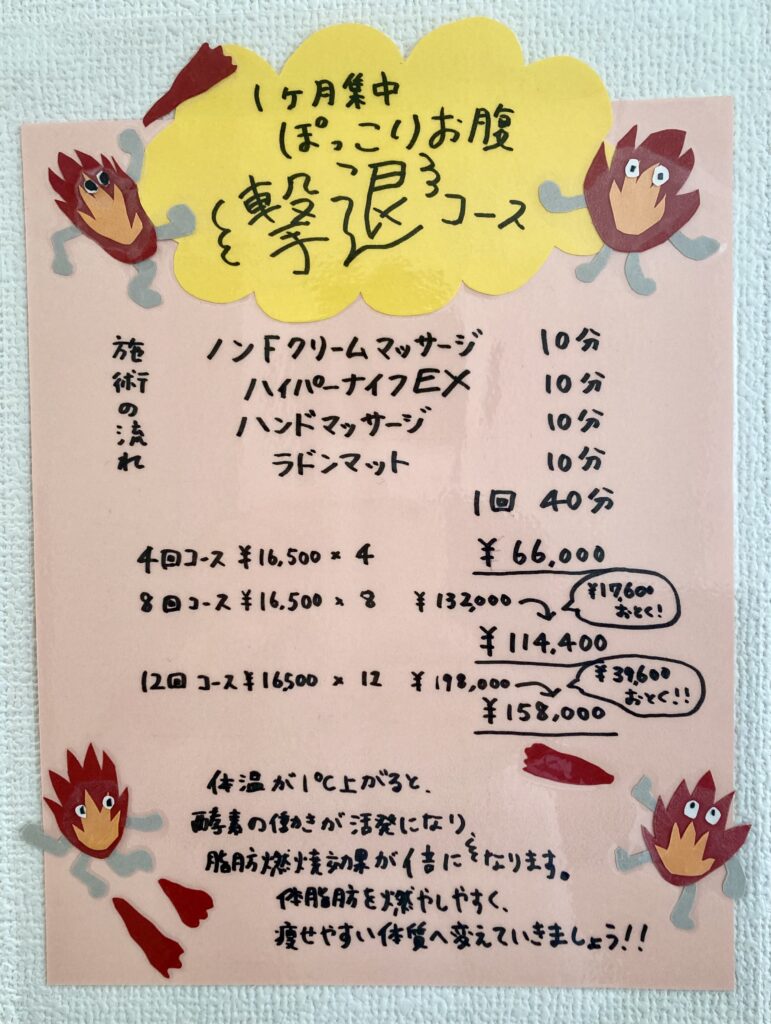 1ヶ月集中
ぽっこりお腹
撃退コース
施術の流れ
ノンFクリームマッサージ 10分
ハイパーナイフEX 10分
ハンドマッサージ 10分
ラドンマット 10分
1回 40分
4回コース ¥16,500 × 4 ¥66,000
8回コース ¥16,500 × 8 ¥132,000
¥17,600
おとく!
¥114,400
12回コース ¥16,500 × 12 ¥198,000
¥39,600
おとく!!
¥158,000
体温が1℃上がると、
酵素の働きが活発になり
脂肪燃焼効果が倍になります。
体脂肪を燃やしやすく、
痩せやすい体質へ変えていきましょう!!